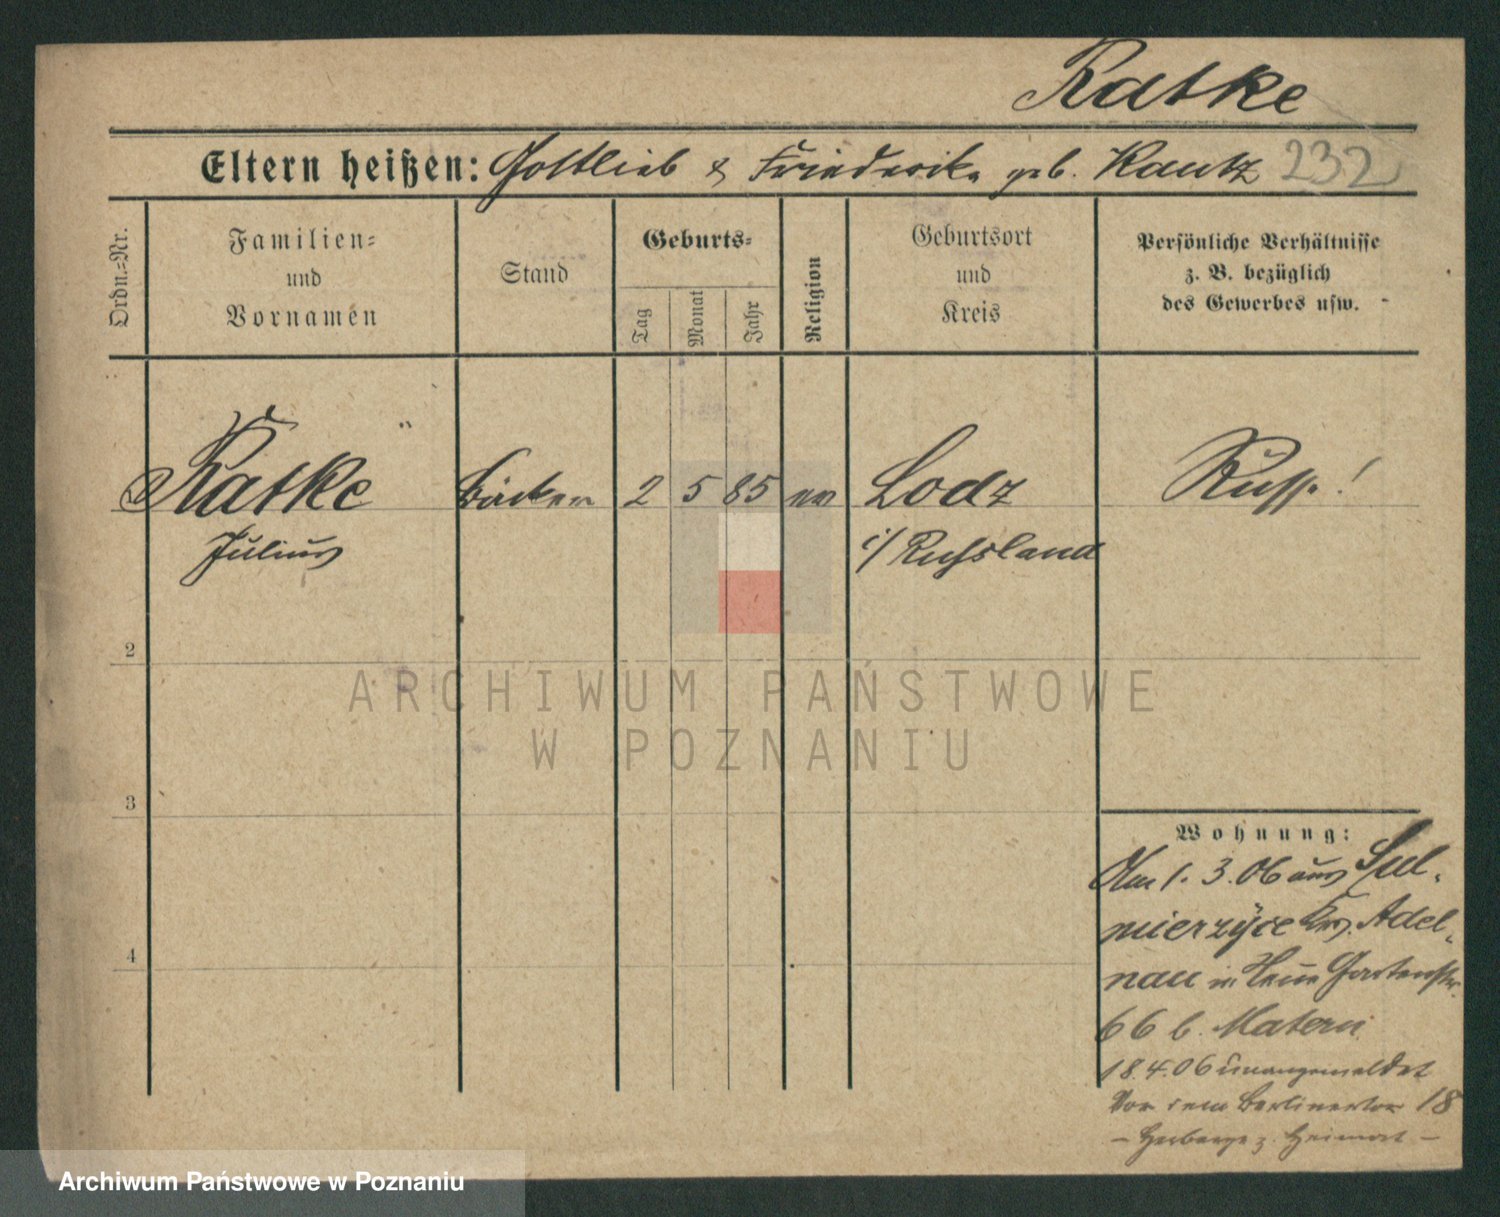 Ratke
Eltern heißen: Gottlieb & Friederike geb. Kautz 232
Ordn.=Nr.
Familien=
und
Vornamen
Stand
Geburts=
Tag
Monat
Jahr
Religion
Geburtsort
und
Kreis
Persönliche Verhältnisse
z. B. bezüglich
des Gewerbes usw.
Ratke Bäcker 2 5 85 ev Lodz Russe!
Julius i/ Russland
2
3
4
Wohnung:
Am 1. 3. 06 aus Sul-
mierzyce Krs. Adel-
nau in Neue Gartenstr.
66 b. Matern
18.4.06 unangemeldet
Vor dem Berlinertor 18
- Herberge z. Heimat -
ARCHIWUM PAŃSTWOWE
W POZNANIU
Archiwum Państwowe w Poznaniu